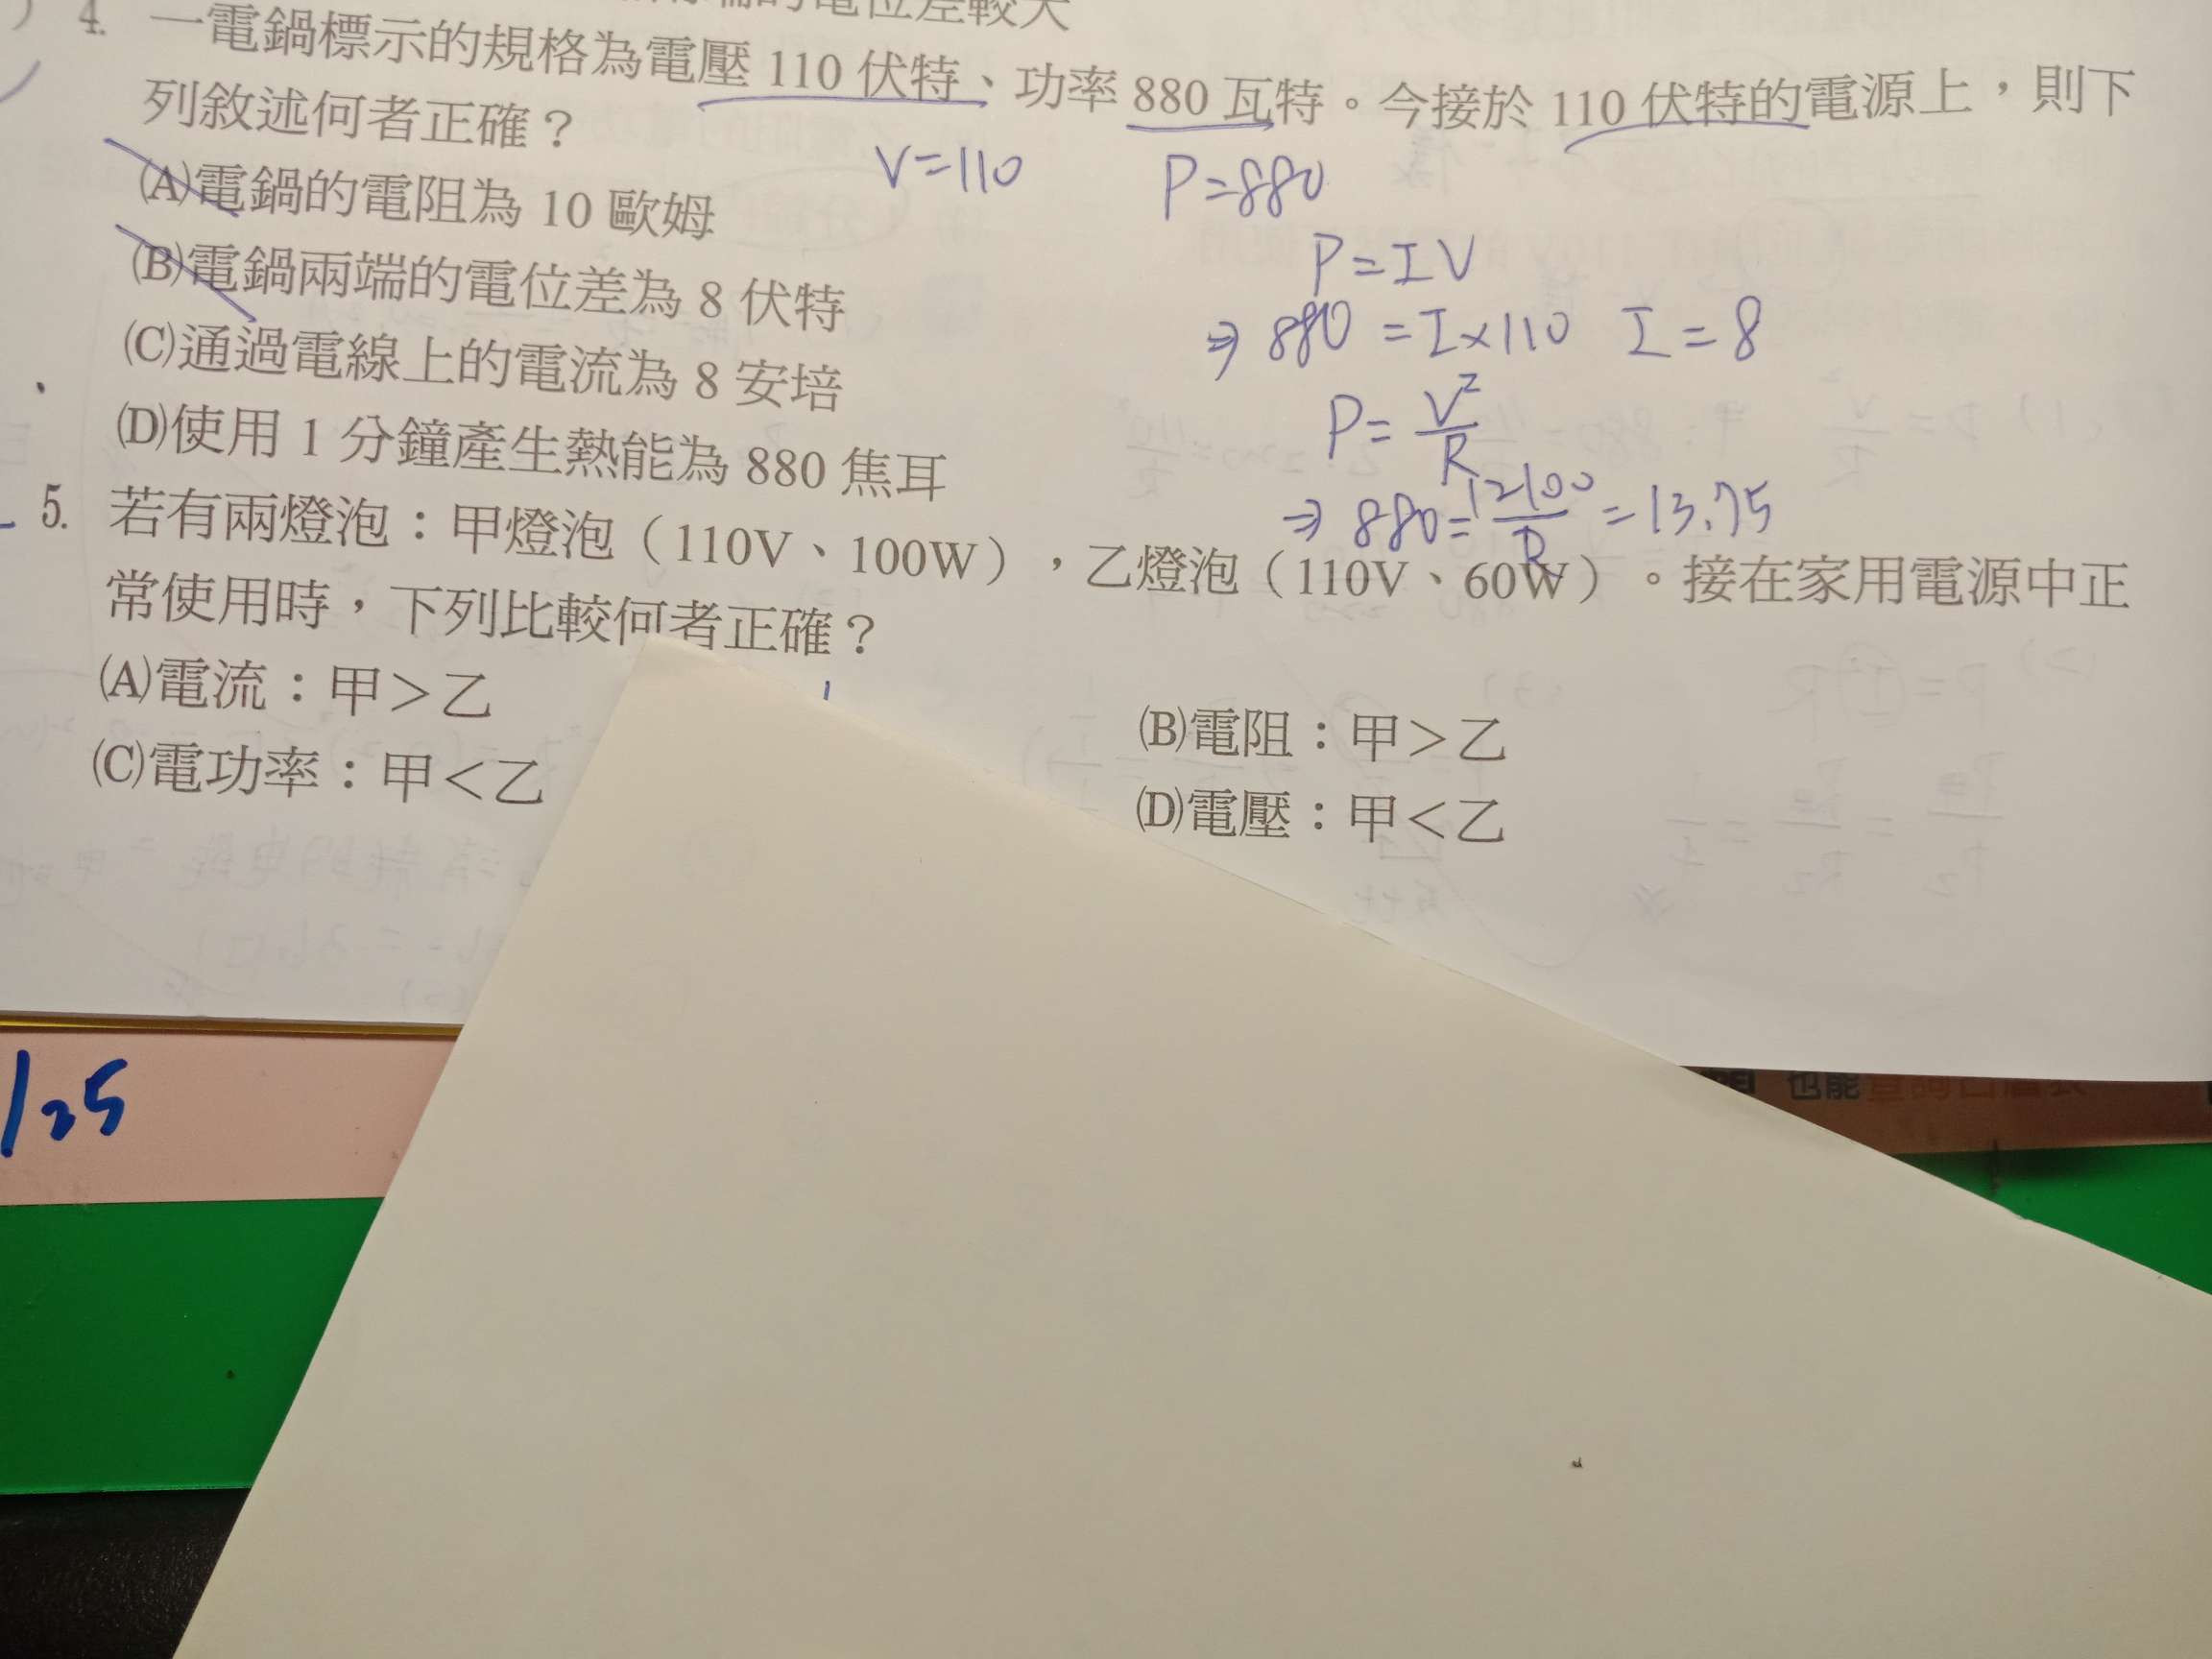 的電位差較大
4. 一電鍋標示的規格為電壓 110 伏特、功率 880 瓦特。今接於 110 伏特的電源上，則下
列敘述何者正確？
V=110 P=880
(A)電鍋的電阻為 10 歐姆
(B)電鍋兩端的電位差為 8 伏特
(C)通過電線上的電流為 8 安培
(D)使用 1 分鐘產生熱能為 880 焦耳
P=IV
⇒ 880 = I×110 I=8
P= V²/R
⇒ 880= 12100/R =13.75
5. 若有兩燈泡：甲燈泡（110V、100W），乙燈泡（110V、60W）。接在家用電源中正
常使用時，下列比較何者正確？
(A)電流：甲＞乙
(B)電阻：甲＞乙
(C)電功率：甲＜乙
(D)電壓：甲＜乙
也能